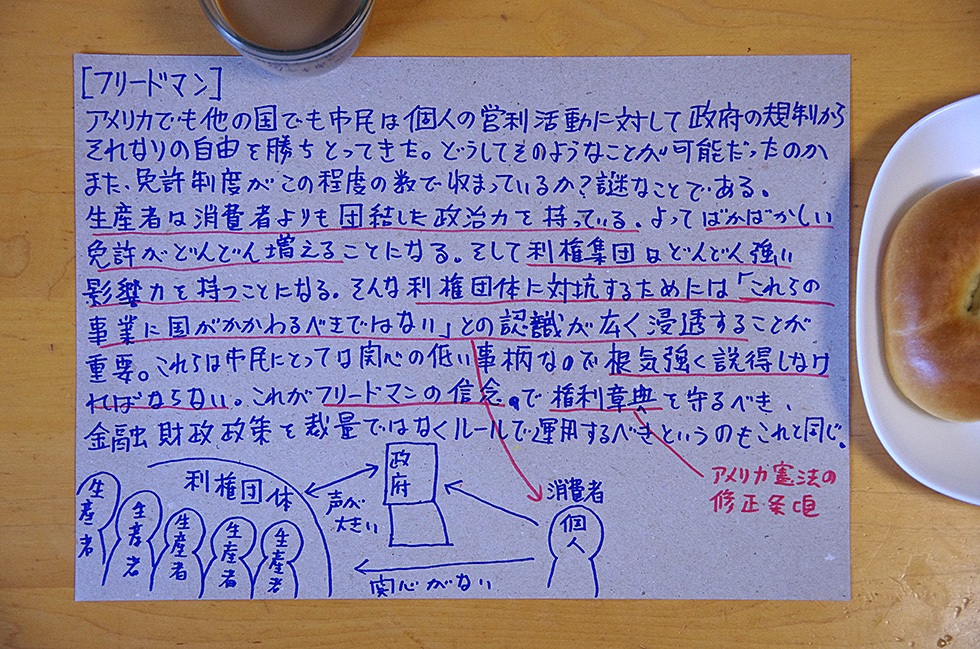 [フリードマン]
アメリカでも他の国でも市民は個人の営利活動に対して政府の規制から
それなりの自由を勝ちとってきた。どうしてそのようなことが可能だったのか
また、免許制度がこの程度の数で収まっているか?謎なことである。
生産者は消費者よりも団結した政治力を持っている。よってばかばかしい
免許がどんどん増えることになる。そして利権集団はどんどん強い
影響力を持つことになる。そんな利権団体に対抗するためには「これらの
事業に国がかかわるべきではない」との認識が広く浸透することが
重要。これらは市民にとっては関心の低い事柄なので根気強く説得しなけ
ればならない。これがフリードマンの信念。で権利章典を守るべき、
金融財政政策を裁量ではなくルールで運用するべきというのもこれと同じ。
アメリカ憲法の
修正条項
利権団体
政府
声が
大きい
消費者
個人
生産者
生産者
生産者
生産者
生産者
関心がない